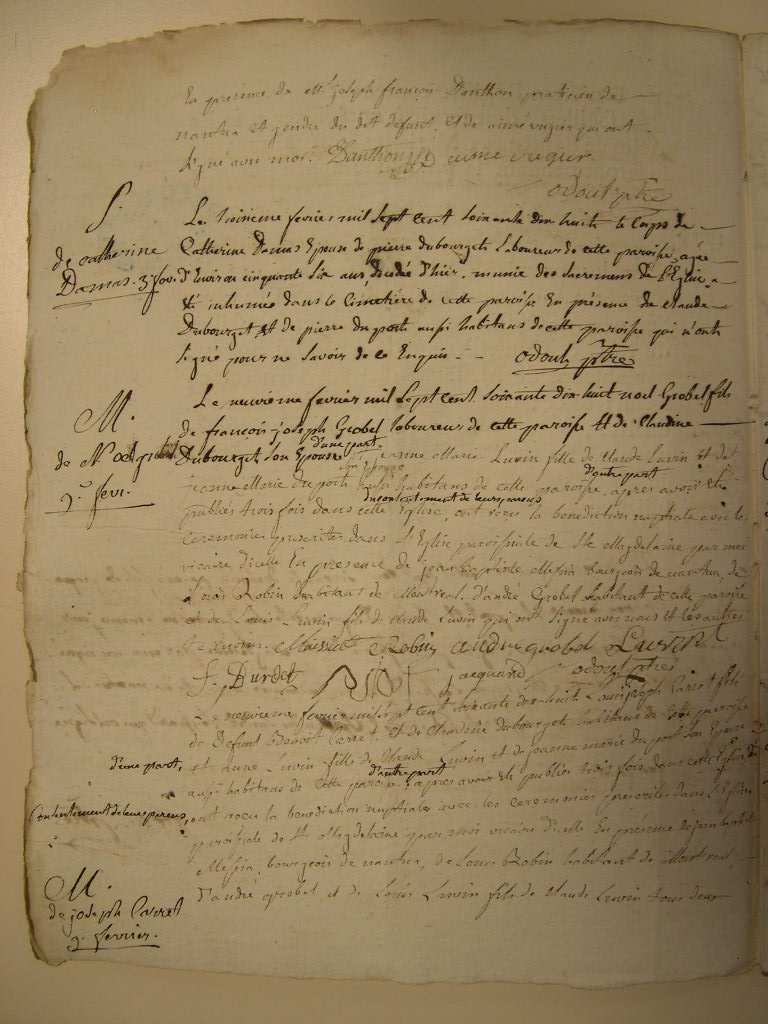 En présence de Mr joseph françois Danthon praticien de
nantua et gendre du dit defunt, et de aimé vugier qui ont
signé avec moi. Danthon aimé vugier
odoul ptre
S.
de Catherine
Damas. 3 fev.
Le troisieme fevrier mil sept cent soixante dix huit le corps de
Catherine Damas Epouse de pierre dubourget laboureur de cette paroisse, agée
D'Environ cinquante six ans, décédée D'hier, munie des sacremens de l'Eglise a
été inhumée dans le Cimetière de cette paroisse En présence de claude
Dubourget et de pierre du pont aussi habitans de cette paroisse qui n'ont
signé pour ne savoir de ce Enquis. odoul ptre
M.
de Noel
9e fevr.
Le neuvieme fevrier mil sept cent soixante dix huit noel Grobel fils
de françois joseph Grobel laboureur de cette paroisse et de Claudine
Dubourget son Epouse d'une part jeanne Marie Luvin fille de claude Luvin et de
jeanne Marie du pont son Epouse aussi habitans de cette paroisse, d'autre part après avoir été
publiés trois fois dans cette Eglise, du contentement de leurs parens ont reçu la bénédiction nuptiale avec les
ceremonies prescrites dans l'Eglise paroissiale de Ste Magdelaine par moi
vicaire d'icelle En presence de jean baptiste Messia bourgeois de nantua, de
Louis Robin habitant de Montreal, d'andré Grobel habitant de cette paroisse
et de Louis Luvin fils de claude Luvin qui ont signé avec nous et les autres
Messia Robin andre grobel Luvin
f. Burdet jacquand odoul ptre
Le neuvieme fevrier mil sept cent soixante dix huit joseph Carret fils
de Defunt Benoit Carret et de Claudine dubourget habitans de cette paroisse
d'une part,
et anne Luvin fille de Claude Luvin et de jeanne marie du pont son Epouse
aussi habitans de cette paroisse d'autre part après avoir été publiés trois fois dans cette Eglise
Contentement de leurs parens,
ont reçu la benediction nuptiale avec les ceremonies prescrites dans l'Eglise
paroissiale de Ste Magdelaine par moi vicaire d'icelle En présence de jean baptiste
Messia, bourgeois de nantua, de Louis Robin habitant de Montreal
M.
de joseph Carret
9e fevrier.
D'andré grobel et de Louis Luvin fils de claude Luvin tous deux